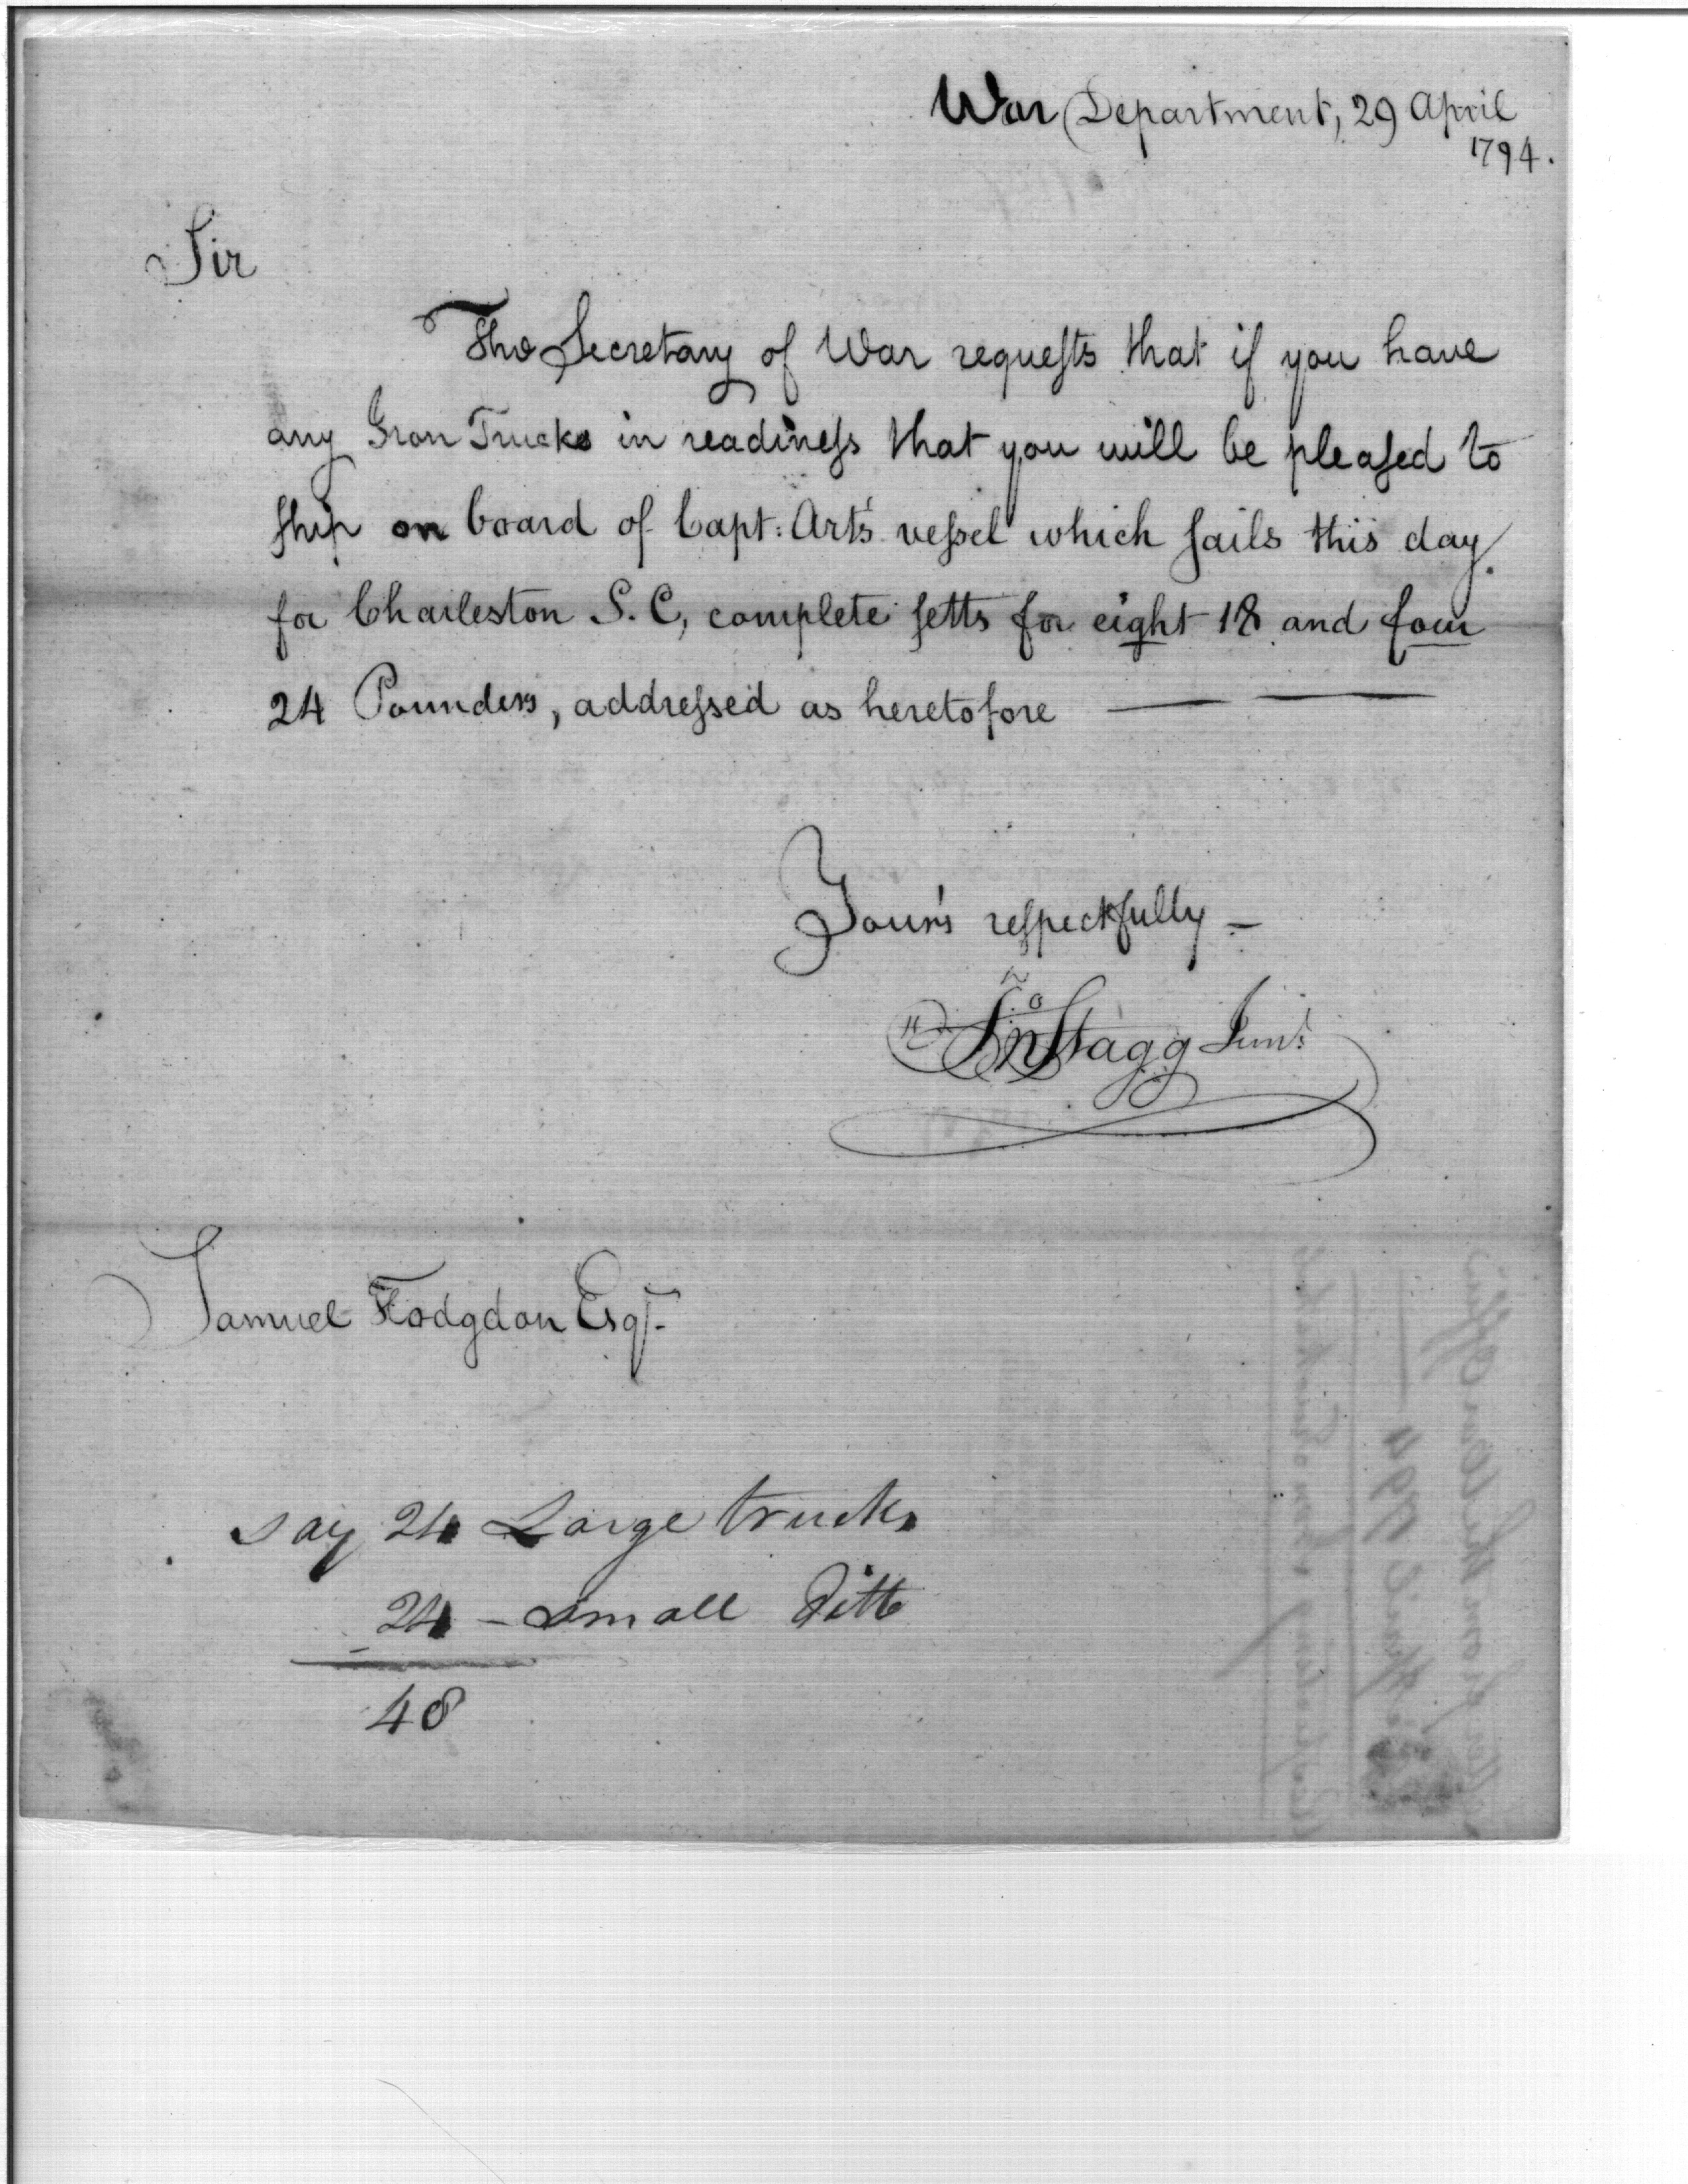 War Department, 29 April
1794.
Sir
The Secretary of War requests that if you have
any Iron Trucks in readiness that you will be pleased to
ship on board of Capt: Art's vessel which sails this day
for Charleston S. C, complete setts for eight 18 and four
24 Pounders, addressed as heretofore
Your's respectfully
Jno Stagg Junr
Samuel Hodgdon Esqr.
say 24 Large trucks
24 - small Ditto
48